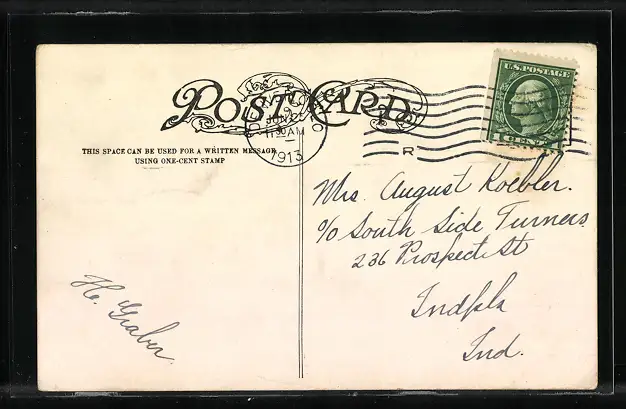 POST CARD
U.S. POSTAGE
1 CENT 1
JUN
11 30 AM
1913
R
THIS SPACE CAN BE USED FOR A WRITTEN MESSAGE
USING ONE-CENT STAMP
Mrs. August Koebler.
c/o South Side Turners
236 Prospect St
Indpls
Ind.
He. Graber.